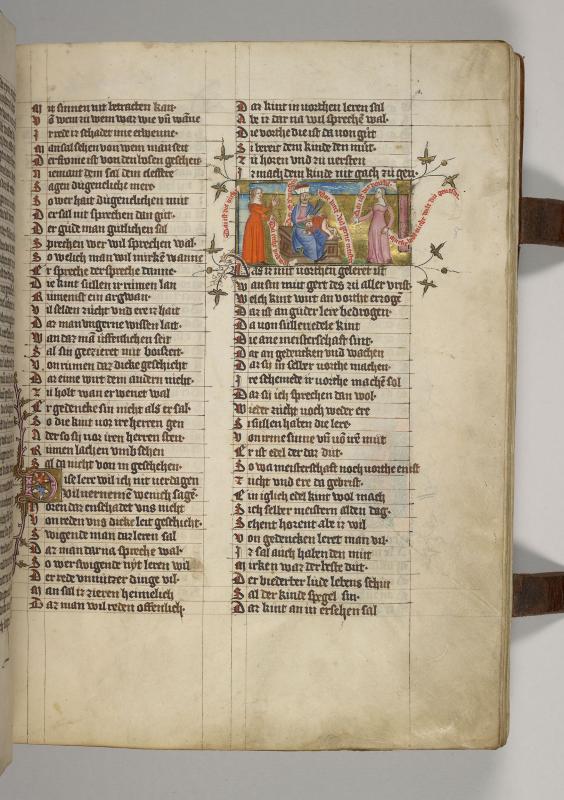 sinnen mit betrachten kan·
wem zu wem war wie vn̄ wāne
rede ir schade
Man sal sehen von wem man seit
Der stonie ist von den bosen geschehen
Niemant dem sal dem
Sagen dugentlich mere·
So wer hait dugentlichen mut
Der sal nit sprechen dan gut·
Der gude man gutlichen sal
Sprechen wer wil sprechen wal·
So welich man wil mirkē wanne
Er spreche der spreche danne·
Die kint sullen it rumen lan
Rumen ist ein argwan·
Vil selden zucht vnd ere it hait
Daz man vngerne wissen lait·
Wan daz mā uffentlichen seit
Sal sin gezieret mit
Von rumen daz dicke geschicht
Daz eine wirt dem andern nicht·
holt wan er wenet wal
Er gedencke sin nicht als er sal·
So die kint vor ire herren gen
Ader so sij vor iren herren sten·
Rumen lachen vmb sehen
Sal da nicht von in geschehen·
Dise lere wil ich nit verdagen
wil vernemē wenich sagē·
Horen daz enschadet vns nicht
Von reden vns dicke leit geschicht·
Swigende man daz leren sal
Daz man dar na spreche wal·
So wer swigende nyt leren wil
Der rede vnnutzer dinge vil·
Man sal it zieren heimelich
Daz man wil reden offenlich·
Daz kint an vorthen leren sal
Abe ir dar na wil sprechē wal·
Die vorthe die ist da von gut
Si bereit dem kinde den mut·
Zu horen vnd zu versten
Ir mach dem kinde nit gach zu gen·
Daz it mit vorthen geleret ist
wan sin mut gert des zu aller vrist·
Welch kint wirt an vorthe erzogē
Daz ist an guder lere bedrogen·
Da von sullen edele kint
Die ane meisterschaft sint·
Dar an gedencken vnd wachen
Daz sij in selber vorthe machen·
Ire schemede ir vorthe machē sol
Daz sij ich sprechen dan wol·
Wieder zucht noch weder ere
Si sullen haben die lere·
Von irme sinne vn̄ vō ire mut
Er ist edel der daz dut·
So wa meisterschaft noch vorthe enist
Zucht vnd ere da gebrist·
Ein iglich edel kint wol mach
Sich selber meistern alden dag·
Sehent horent abe ir wil
Von gedencken leret man vil·
Ir sal auch haben den mut
Mirken waz der beste dut·
Der biederber lude lebens schin
Sal der kinde spegel sin·
Daz kint an in ersehen sal